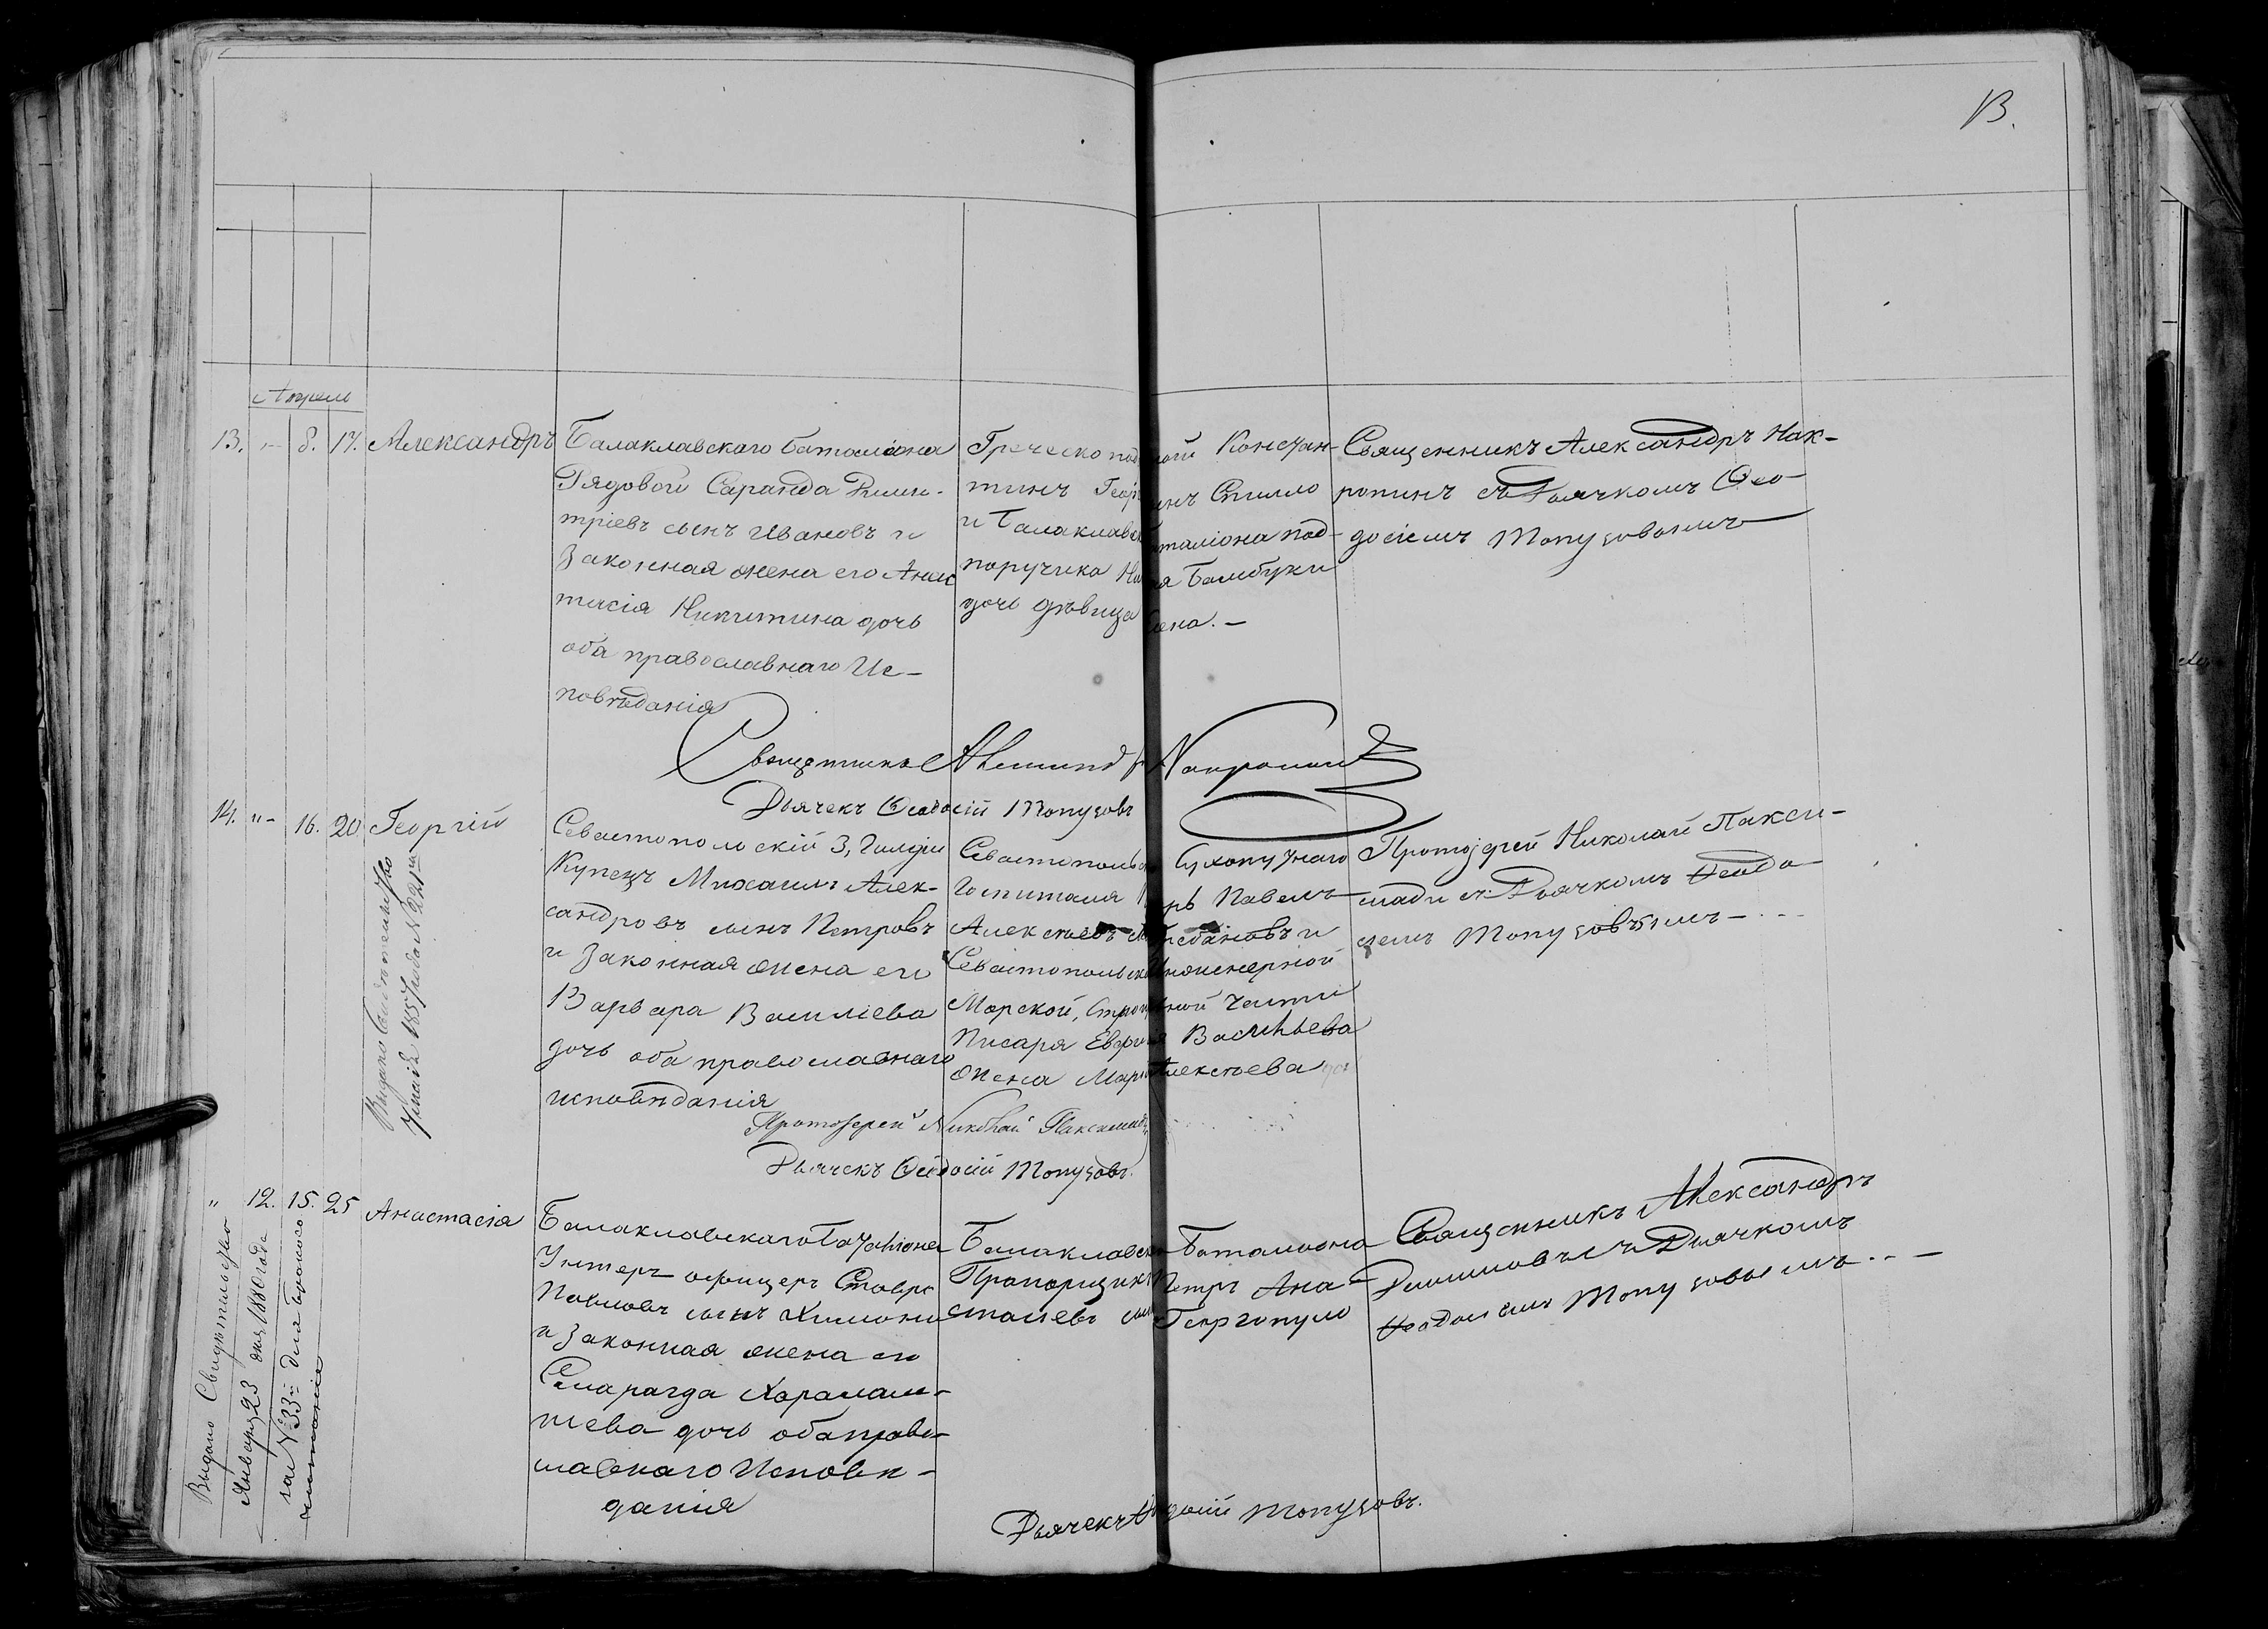 13.
Апрель
13. - 8. 17. Александръ
Балаклавскаго баталіона
Рядовой Саранда Дмит-
тріевъ сынъ Ивановъ и
Законная жена его Анас
тасія Никитина дочь
оба православнаго Ис-
повѣданія
Греческо под ной Констан-
тинъ Спилло
и Балаклавск аталіона под-
поручика Бамбуки
дочь дѣвица Елена. -
Священникъ Александръ Нак-
ропинъ съ Дьячкомъ Ѳео-
досіемъ Топузовымъ
Священникъ Александръ Накропинъ
Дьячекъ Ѳеодосій Топузовъ
14. "- 16. 20 Георгій
Выдано Свидѣтельство
185 года № 221
Севастопольскій 3, Гильдіи
Купецъ Михаилъ Алек-
сандровъ сынъ Петровъ
и Законная жена его
Варвара Васильева
дочь оба православнаго
исповѣданія
Севастопольск Сухопутнаго
Госпиталя Павелъ
Алексѣевъ и
Севастопольск Инженерной
Морской, Строительной Части
Писаря Васильева
жена Марія Алексѣева
Протоіерей Николай Пакси-
мади съ Дьячкомъ Ѳеодо
сіемъ Топузовымъ - . . -
Протоіерей Николай Паксимади
Дьячекъ Ѳеодосій Топузовъ.
" 12. 15. 25 Анастасія
Выдано Свидѣтельство
Января 23 дня 1880 года
за № 33 для брачнаго
Балаклавскаго Баталіона
Унтеръ офицеръ Ставро
Павловъ сынъ
и Законная жена его
Смарагда Харалам-
піева дочь оба право-
славнаго Исповѣ-
данія
Балаклавск Баталіона
Прапорщикъ Петръ Ана-
стасіевъ сынъ Георгопуло
Священникъ Александръ
съ Дьячкомъ
Ѳеодосіемъ Топузовымъ . . -
Дьячекъ Ѳеодосій Топузовъ.